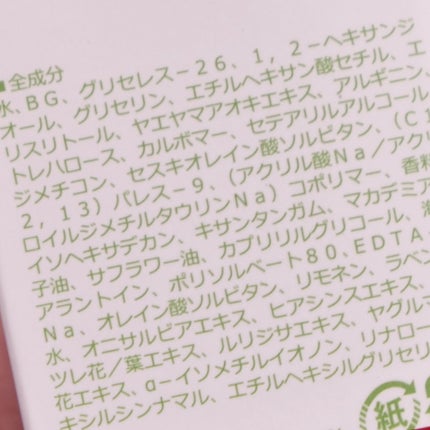 ■全成分
水、BG、グリセレス－26、1，2－ヘキサンジ
オール、グリセリン、エチルヘキサン酸セチル、エ
リスリトール、ヤエヤマアオキエキス、アルギニン、
トレハロース、カルボマー、セテアリルアルコール
ジメチコン、セスキオレイン酸ソルビタン、（C1
2，13）パレス－9、（アクリル酸Na／アクリ
ロイルジメチルタウリンNa）コポリマー、香料
イソヘキサデカン、キサンタンガム、マカデミア
子油、サフラワー油、カプリリルグリコール、海
アラントイン、ポリソルベート80、EDTA
Na、オレイン酸ソルビタン、リモネン、ラベン
水、オニサルビアエキス、ヒアシンスエキス、
ツレ花／葉エキス、ルリジサエキス、ヤグルマ
花エキス、α－イソメチルイオノン、リナロー
キシルシンナマル、エチルヘキシルグリセリ
紙